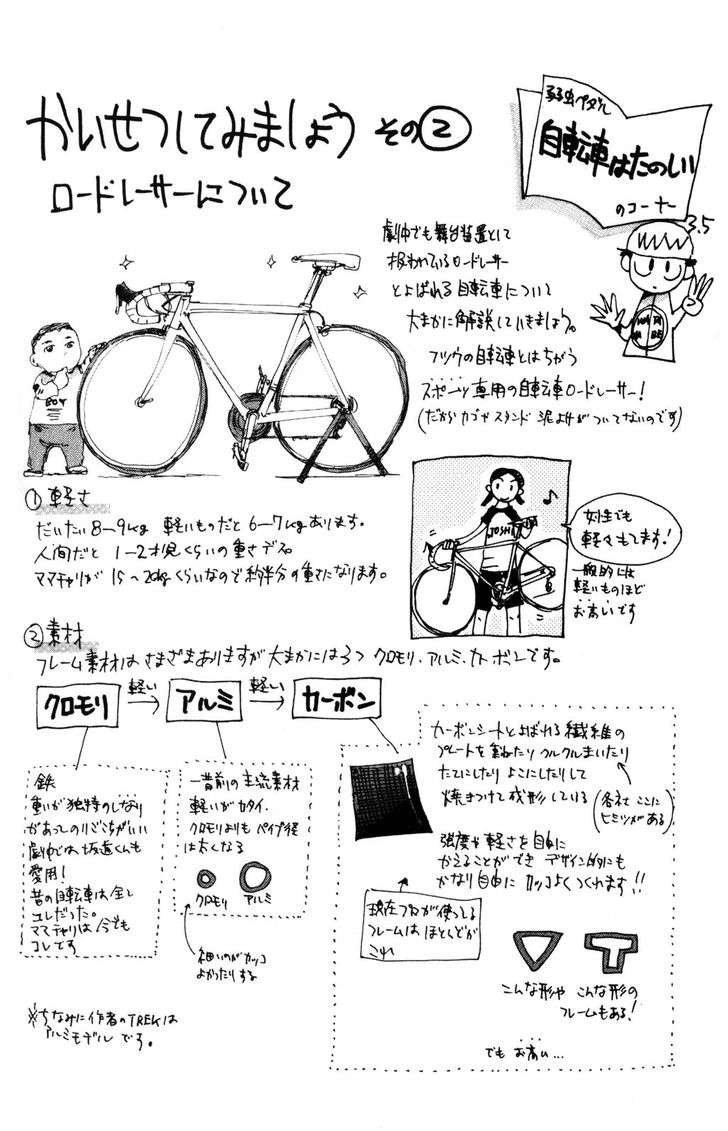 かいせつしてみましょう その②
ロードレーサーについて
弱虫ペダル
自転車はたのしい
のコーナー
3.5
劇中でも舞台装置として
扱われているロードレーサー
とよばれる自転車について
大まかに解説していきましょう。
フツウの自転車とはちがう
スポーツ専用の自転車ロードレーサー!
(だからカゴやスタンド 泥よけがついてないのです)
BOY
①軽さ
だいたい8〜9kg 軽いものだと6〜7kgあります。
人間だと 1〜2才児くらいの重さデス。
ママチャリが 15〜20kgくらいなので約半分の重さになります。
JOSHI
女性でも
軽々もてます!
一般的には
軽いものほど
お高いです
②素材
フレーム素材は さまざまありますが 大まかには3つ クロモリ、アルミ、カーボンです。
クロモリ 軽い→ アルミ 軽い→ カーボン
鉄
重いが独特のしなり
があってのりごこちがいい
劇中では、坂道くんも
愛用!
昔の自転車は全て
コレだった。
ママチャリは今でも
コレです
一昔前の主流素材
軽いがカタイ、
クロモリよりもパイプ径
は太くなる
クロモリ アルミ
細いのがカッコ
よかったりする
カーボンシートとよばれる繊維の
プレートを重ねたり クルクルまいたり
たてにしたり よこにしたりして
焼きつけて成形している
(各社ここに
ヒミツがある)
強度や軽さを自由に
かえることができ デザイン的にも
かなり自由に カッコよくつくれます!!
現在プロが使ってる
フレームは ほとんどが
これ
こんな形や こんな形の
フレームもある!
でも お高い…
※ちなみに作者のTREKは
アルミモデル です。